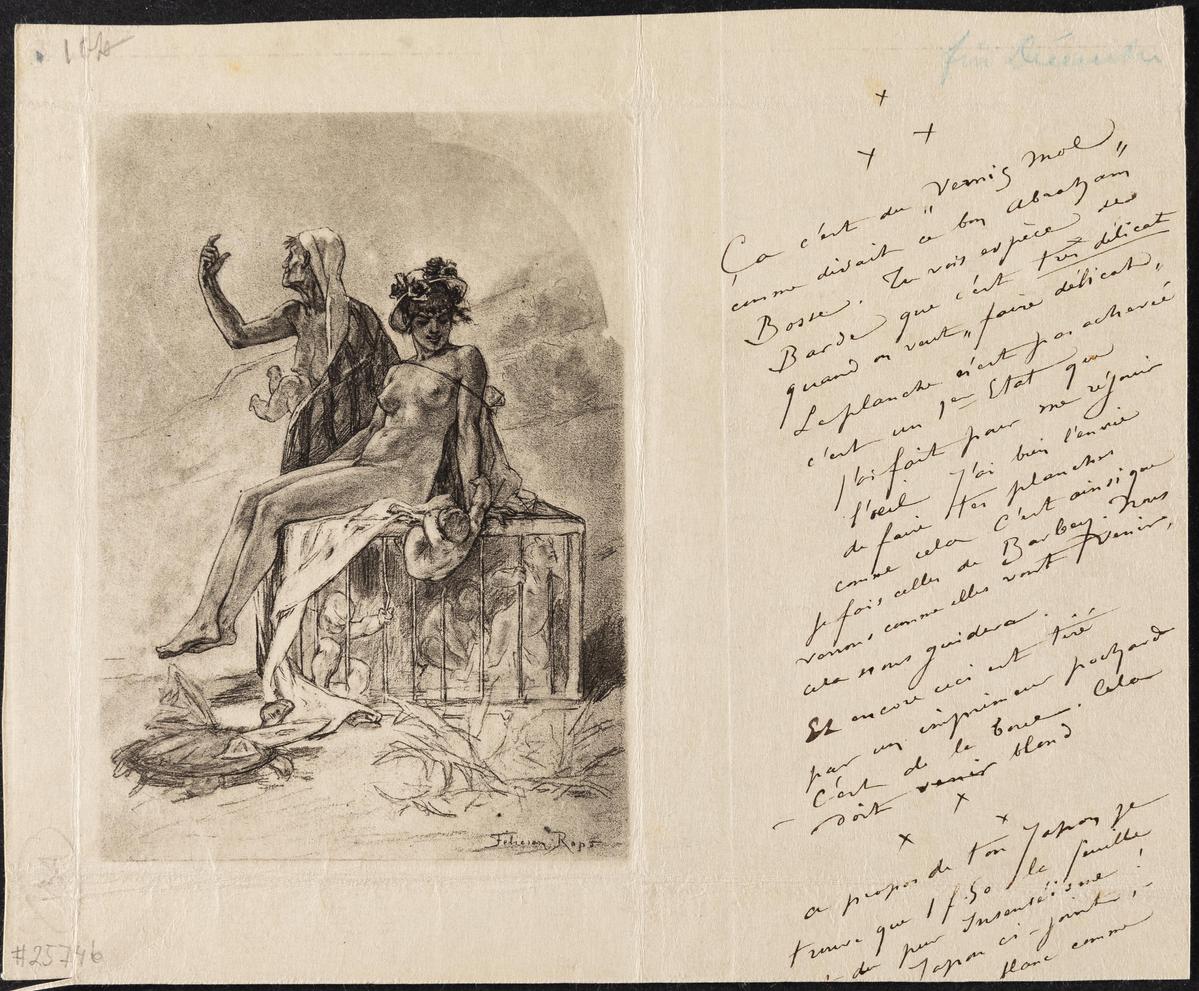 fin Décembre
x
x
x
Ça c'est du „Vernis mol„
comme disait ce bon Abraham
Bosse. Tu vois espèce de
Barde que c'est très délicat
quand on veut „faire délicat„
La planche n'est pas achevée
c'est un 1er Etat que
j'ai fait pour me réjouir
l'œil J'ai bien l'envie
de faire tes planches
comme cela C'est ainsi que
je fais celles de Barbey. Nous
verrons comme elles vont venir,
cela nous guidera.
Et encore ceci est tiré
par un imprimeur pochard
C'est de la boue. Cela
doit venir blond
x
x
x
a propos de ton Japon je
trouve que 1 f.50 la feuille
du pur Insenséisme !
Japon ci-joint,
blanc comme
Félicien Rops
#25746